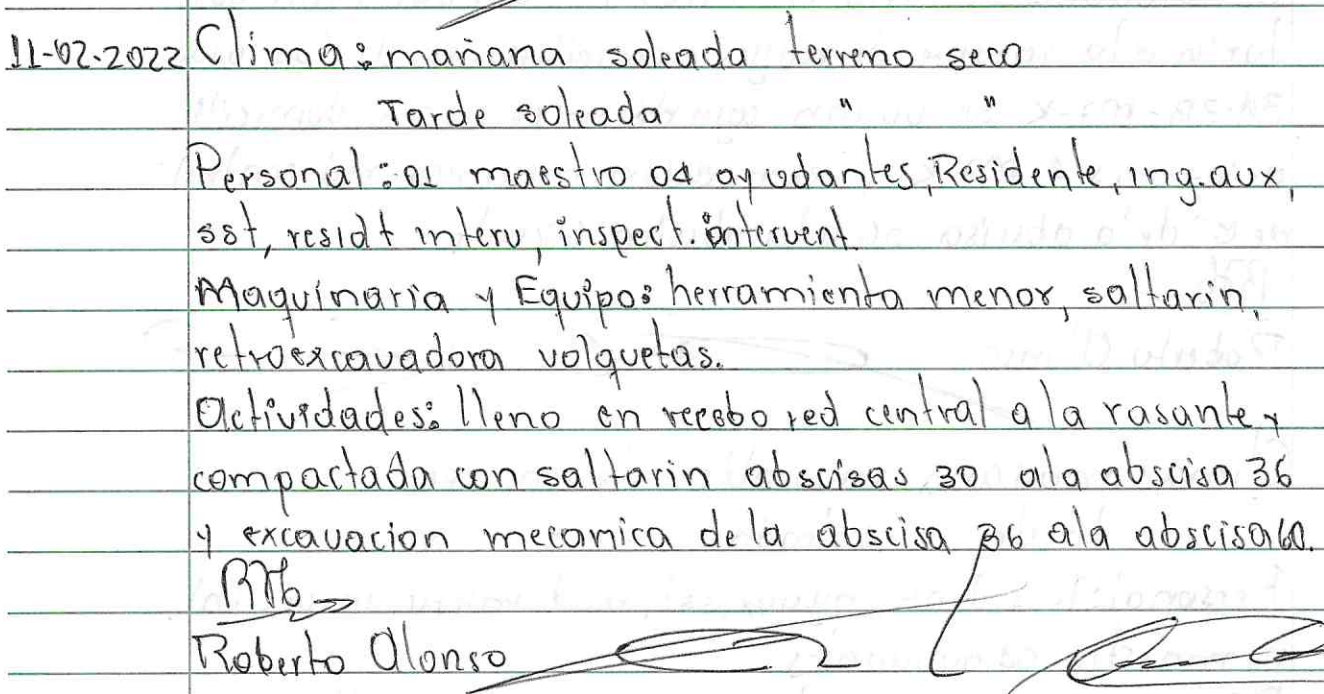 11-02-2022 Clima: mañana soleada terreno seco
Tarde soleada " "
Personal: 01 maestro 04 ayudantes, Residente, ing. aux,
sst, residt interv, inspect. intervent
Maquinaria y Equipo: herramienta menor, saltarin,
retroexcavadora volquetas.
Actividades: lleno en recebo red central a la rasante y
compactada con saltarin abscisas 30 a la abscisa 36
y excavacion mecanica de la abscisa 36 a la abscisa 60.
Roberto Alonso